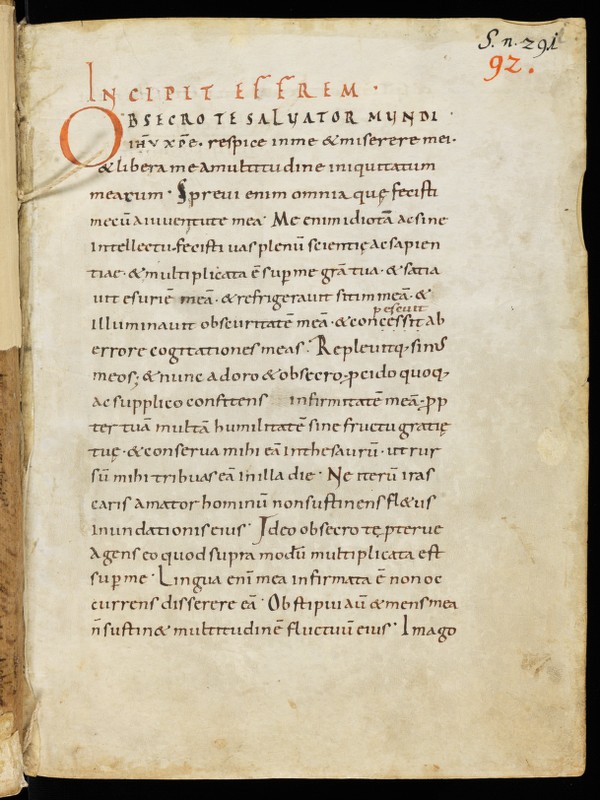 S. n. 291
92.
INCIPIT EFFREM ·
OBSECRO TE SALVATOR MUNDI ·
ihū xp̄e · respice inme & miserere mei ·
& libera me amultitudine iniquitatum
mearum · Sprevi enim omnia quę fecisti
mecū aiuventute mea · Me enim idiotā ac sine
intellectu · fecisti vas plenū scientię ac sapien
tiae · & multiplicata ē sup me grā tua · & satia
vit esuriē meā · & refrigeravit sitim meā · &
pescuit
illuminavit obscuritatē meā · & concessit ab
errore cogitationes meas · Replevitq; sinus
meos; & nunc adoro & obsecro, pcido quoq;
ac supplico confitens infirmitatē meā · pp
ter tuā multā humilitatē sine fructu gratię
tuę · & conserva mihi eā inthesaurū · ut rur
sū mihi tribuas eā inilla die · Ne iterū iras
caris amator hominū non sustinens fl&us
inundationis eius · Ideo obsecro te pterve
agens eo quod supra modū multiplicata est
sup me · Lingua enī mea infirmata ē non oc
currens disserere eā · Obstipui aū & mens mea
n̄ sustin& multitudinē fluctuū eius · Imago